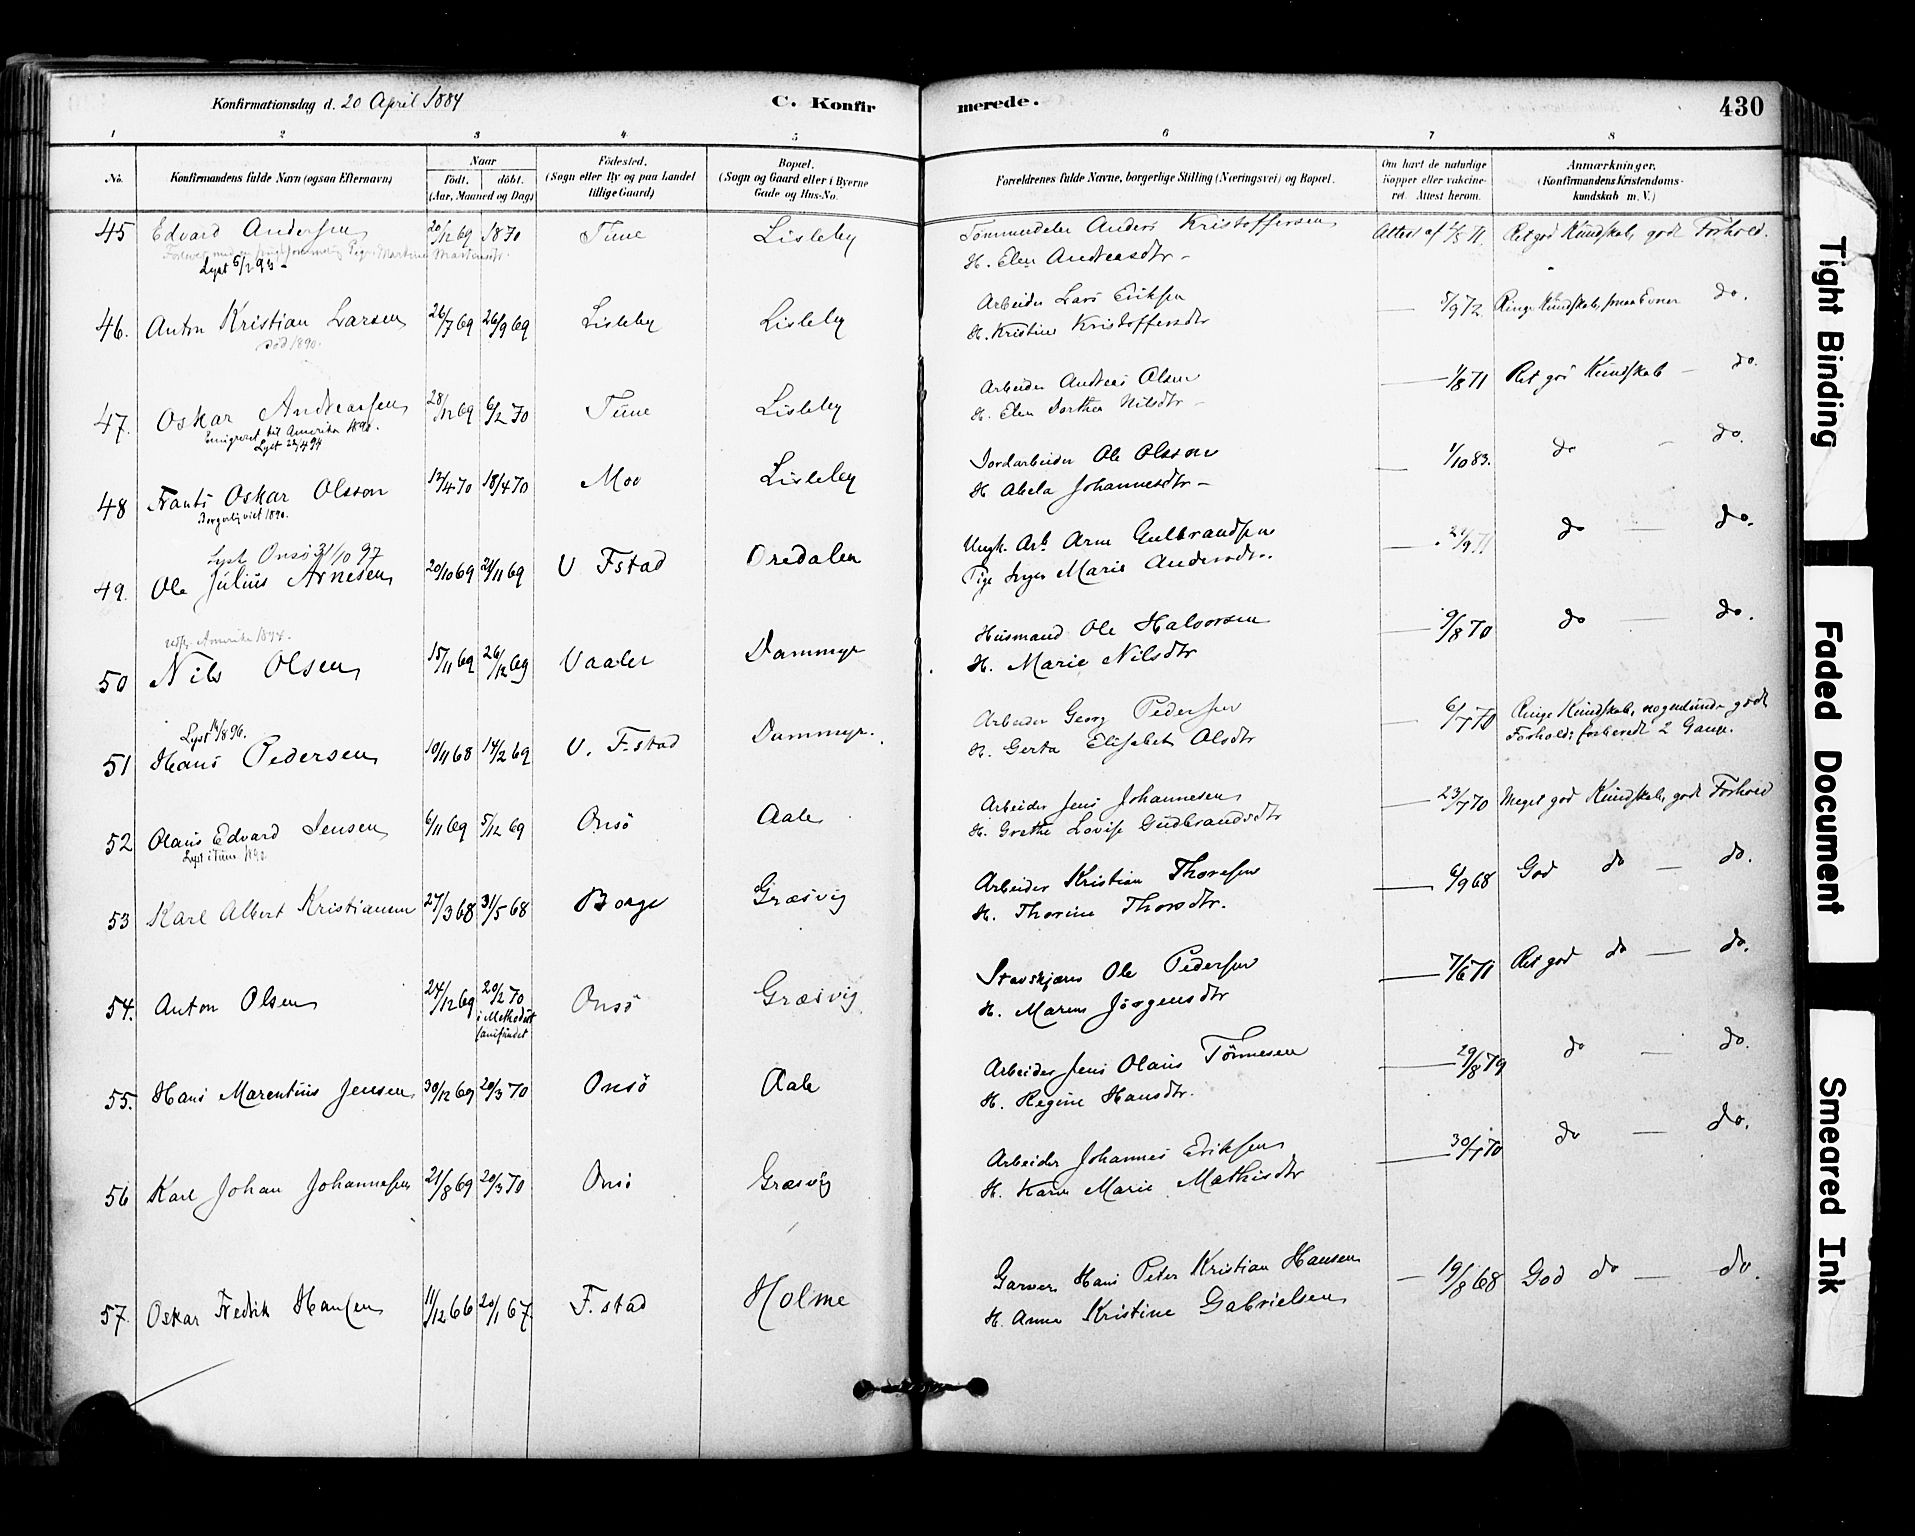 Konfirmationsdag d. 20 April 1884 C. Konfirmerede. 430
1 2 3 4 5 6 7 8
No. Konfirmandens fulde Navn (ogsaa Efternavn) Naar födt. döbt. (Aar, Maaned og Dag) Födested. (Sogn eller By og paa Landet tillige Gaard) Bopæl. (Sogn og Gaard eller i Byerne Gade og Hus-No. Forældrenes fulde Navne, borgerlige Stilling (Næringsvei) og Bopæl. Om havt de naturlige Kopper eller vakcineret. Attest herom. Anmærkninger. (Konfirmandens Kristendomskundskab m. V.)
45 Edvard Andersen 20/12 69 1870 Tune Lisleby Tømmandeler Anders Kristoffersen Attest af /8 71. Ret god Kundskab, godt Forhold.
Lyst 5/2 93 - H. Elen Andreasdtr -
46. Anton Kristian Larsen 26/7 69 26/9 69 Lisleby Lisleby Arbeider Lars Eriksen — 5/9 72 Ringe Kundskab, smaa Evner do.
død 1890. H. Kristine Kristoffersdtr
47. Oskar Andreassen 28/12 69 6/2 70 Tune Lisleby Arbeider Andreas Olsen — /8 71 Ret god Kundskab — do.
Emigreret til Amerika 1890. H. Elen Dorthea Nilsdtr -
Lyst 22/4 94
48 Frants Oskar Olsson 12/4 70 18/4 70 Moo Lisleby Jordarbeider Ole Olsson — 1/10 83. do - do.
Borgerlig viet 1890. H. Abela Johannesdtr -
Lyst Onsö 31/10 97
49. Ole Julius Arnesen 20/10 69 21/11 69 V Fstad Oredalen Ungk. Arb. Arne Gulbrandsen — 21/9 71 do — do.
Pige Inger Marie Andersdtr.
udfl. Amerika 1894.
50 Nils Olsen 15/11 69 26/12 69 Vaaler Dammyr Husmand Ole Halvorsen — 9/8 70 do — do.
H. Marie Nilsdtr
Lyst 14/8 96.
51 Hans Pedersen 10/11 68 14/2 69 V. F.stad Dammyr. Arbeider Georg Pedersen — 6/7 70 Ringe Kundskab, nogenlunde godt
H. Gerta Elisabet Olsdtr Forhold; forberedt 2 Gange.
52 Olaus Edvard Jensen 6/11 69 5/12 69 Onsö Aale Arbeider Jens Johannesen — 23/7 70 Meget god Kundskab, godt Forhold
Lyst i Tune 1892 H. Grethe Lovise Gudbrandsdtr
53 Karl Albert Kristiansen 27/3 68 31/5 68 Borge Græsvig Arbeider Kristian Thoresen — 6/9 68 God do — do.
H. Thorine Thorsdtr.
54. Anton Olsen 24/12 69 20/2 70 Onsö Græsvig Stavskjærer Ole Pedersen — 7/6 71 Ret god do — do.
i Methodist samfundet H. Maren Jörgensdtr
55. Hans Marentius Jensen 30/12 69 20/3 70 Onsö Aale Arbeider Jens Olaus Tönnesen — 29/8 79 do — do.
H. Regine Hansdtr.
56 Karl Johan Johannesen 21/8 69 20/3 70 Onsö Græsvig Arbeider Johannes Eriksen — 30/7 70 do — do.
H. Karen Marie Mathisdtr
57. Oskar Fredrik Hansen 11/12 66 20/1 67 F.stad Holme Garver Hans Peter Kristian Hansen — 19/8 68 God do — do.
H. Anne Kristine Gabrielsen
Tight Binding
Faded Document
Smeared Ink